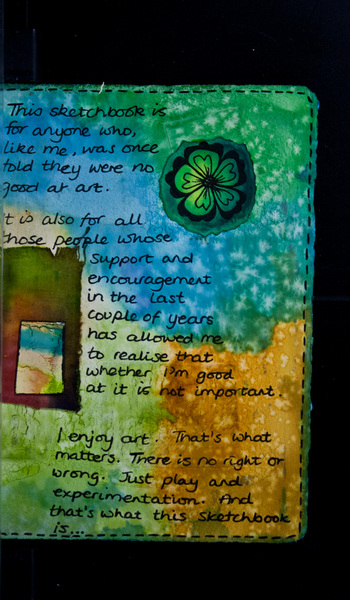 This sketchbook is
for anyone who,
like me, was once
told they were no
good at art.
t is also for all
those people whose
support and
encouragement
in the last
couple of years
has allowed me
to realise that
whether I'm good
at it is not important.
I enjoy art. That's what
matters. There is no right or
wrong. Just play and
experimentation. And
that's what this sketchbook
is...